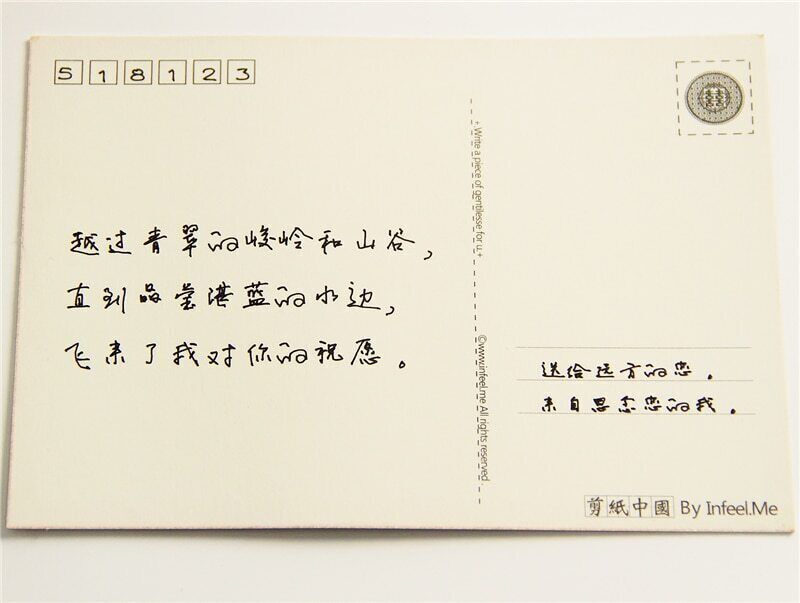 518123
越过青翠的峻岭和山谷，
直到晶莹湛蓝的水边，
飞来了我对你的祝愿。
+ Write a piece of gentilesse for u.+
©www.infeel.me All rights reserved.
囍
送给远方的您．
来自思念您的我．
剪紙中國 By Infeel.Me